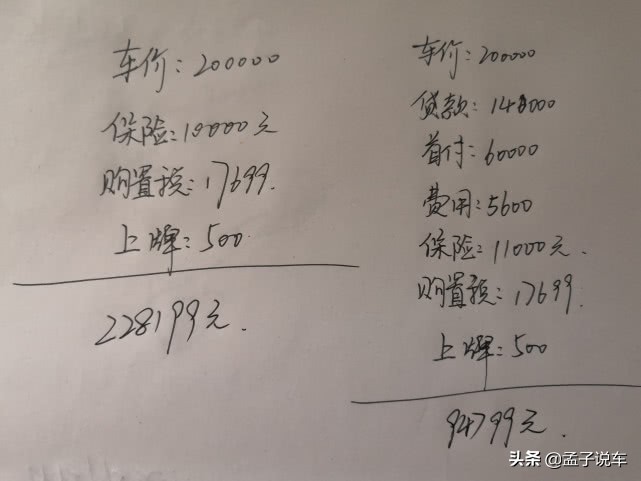 车价:200000
保险:10000元
购置税:17699.
上牌:500.
228199元.
车价:200000
贷款:140000
首付:60000
费用:5600
保险:11000元.
购置税:17699.
上牌:500
94799元.
头条 @孟子说车